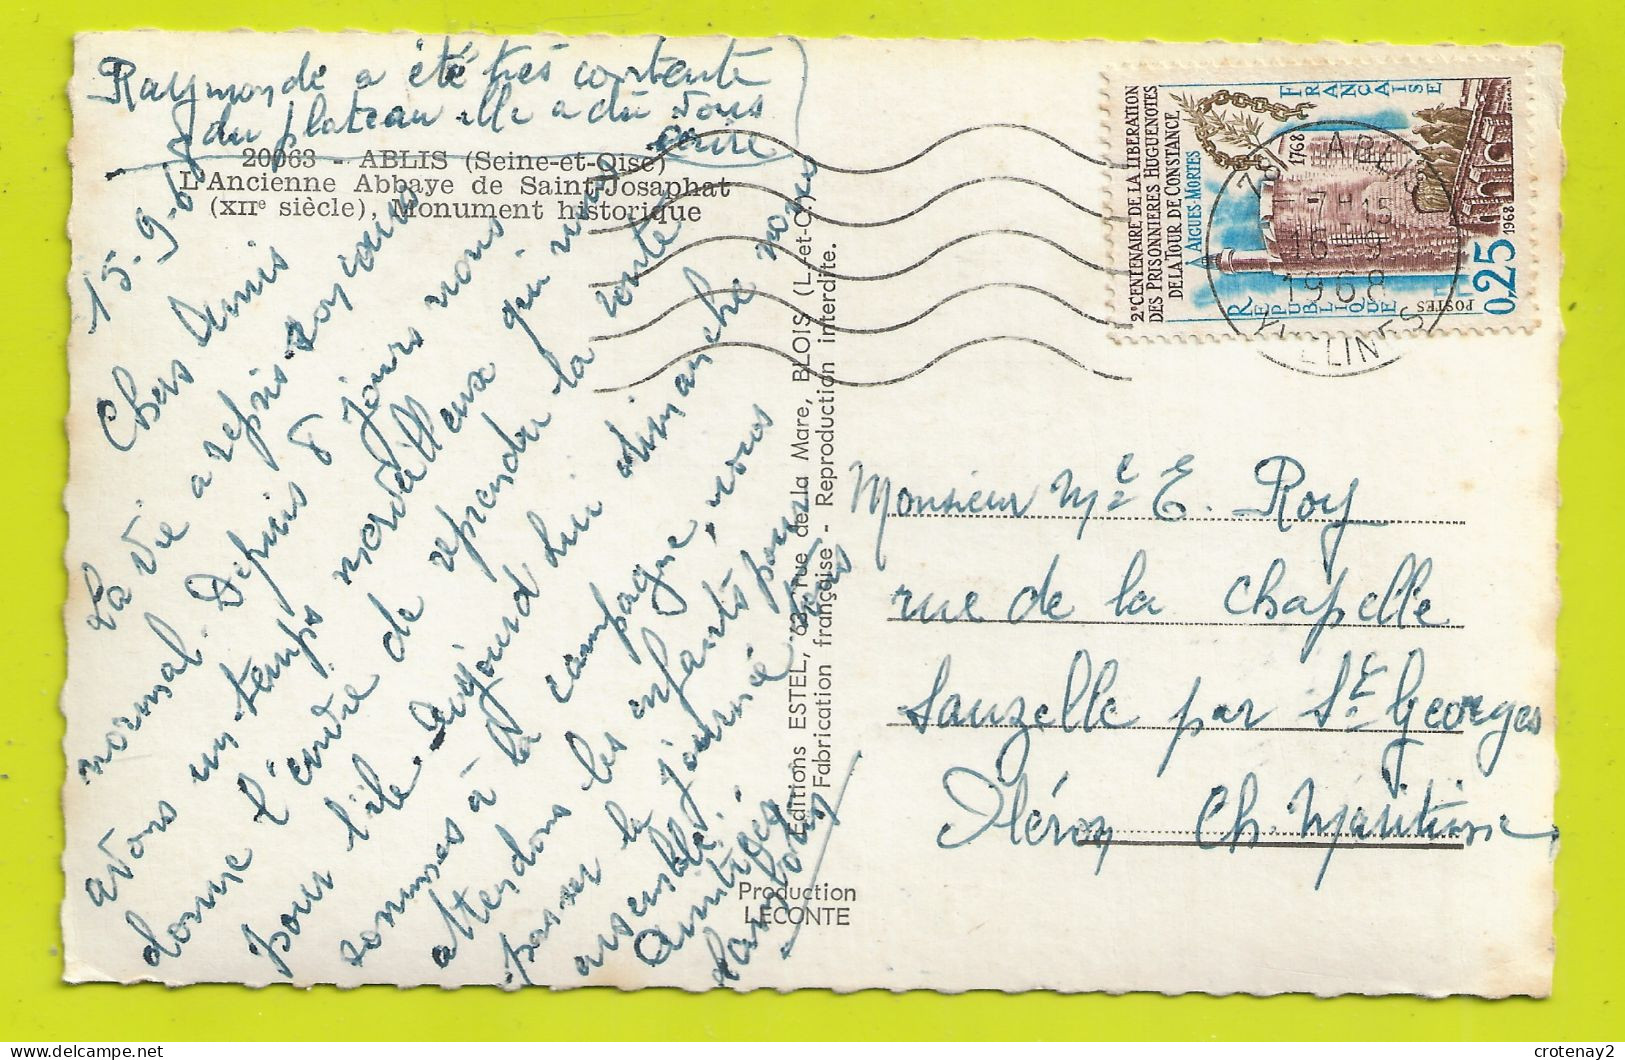 Raymonde a été très contente
du plateau elle a dû vous
écrire
20063 - ABLIS (Seine-et-Oise)
L'Ancienne Abbaye de Saint-Josaphat
(XIIe siècle), Monument historique
15-9-68
Chers Amis
La vie a repris son cours
normal. Depuis 8 jours nous
avons un temps merveilleux qui nous
donne l'envie de reprendre la route
pour l'île. Aujourd'hui dimanche nous
sommes à la campagne, nous
attendons les enfants pour
passer la journée
ensemble.
Amitiés
Editions ESTEL, 63, rue de la Mare, BLOIS (L.-et-C.)
Fabrication française - Reproduction interdite.
Production
LECONTE
2e CENTENAIRE DE LA LIBERATION
DES PRISONNIERES HUGUENOTES
DE LA TOUR DE CONSTANCE
A AIGUES-MORTES
1768
REPUBLIQUE FRANÇAISE
1968
POSTES
0,25
78 ABLIS
7H15
16-9
1968
YVELINES
Monsieur Me E. Roy
rue de la Chapelle
Sauzelle par St Georges
Oléron Ch. Maritime
crotenay2